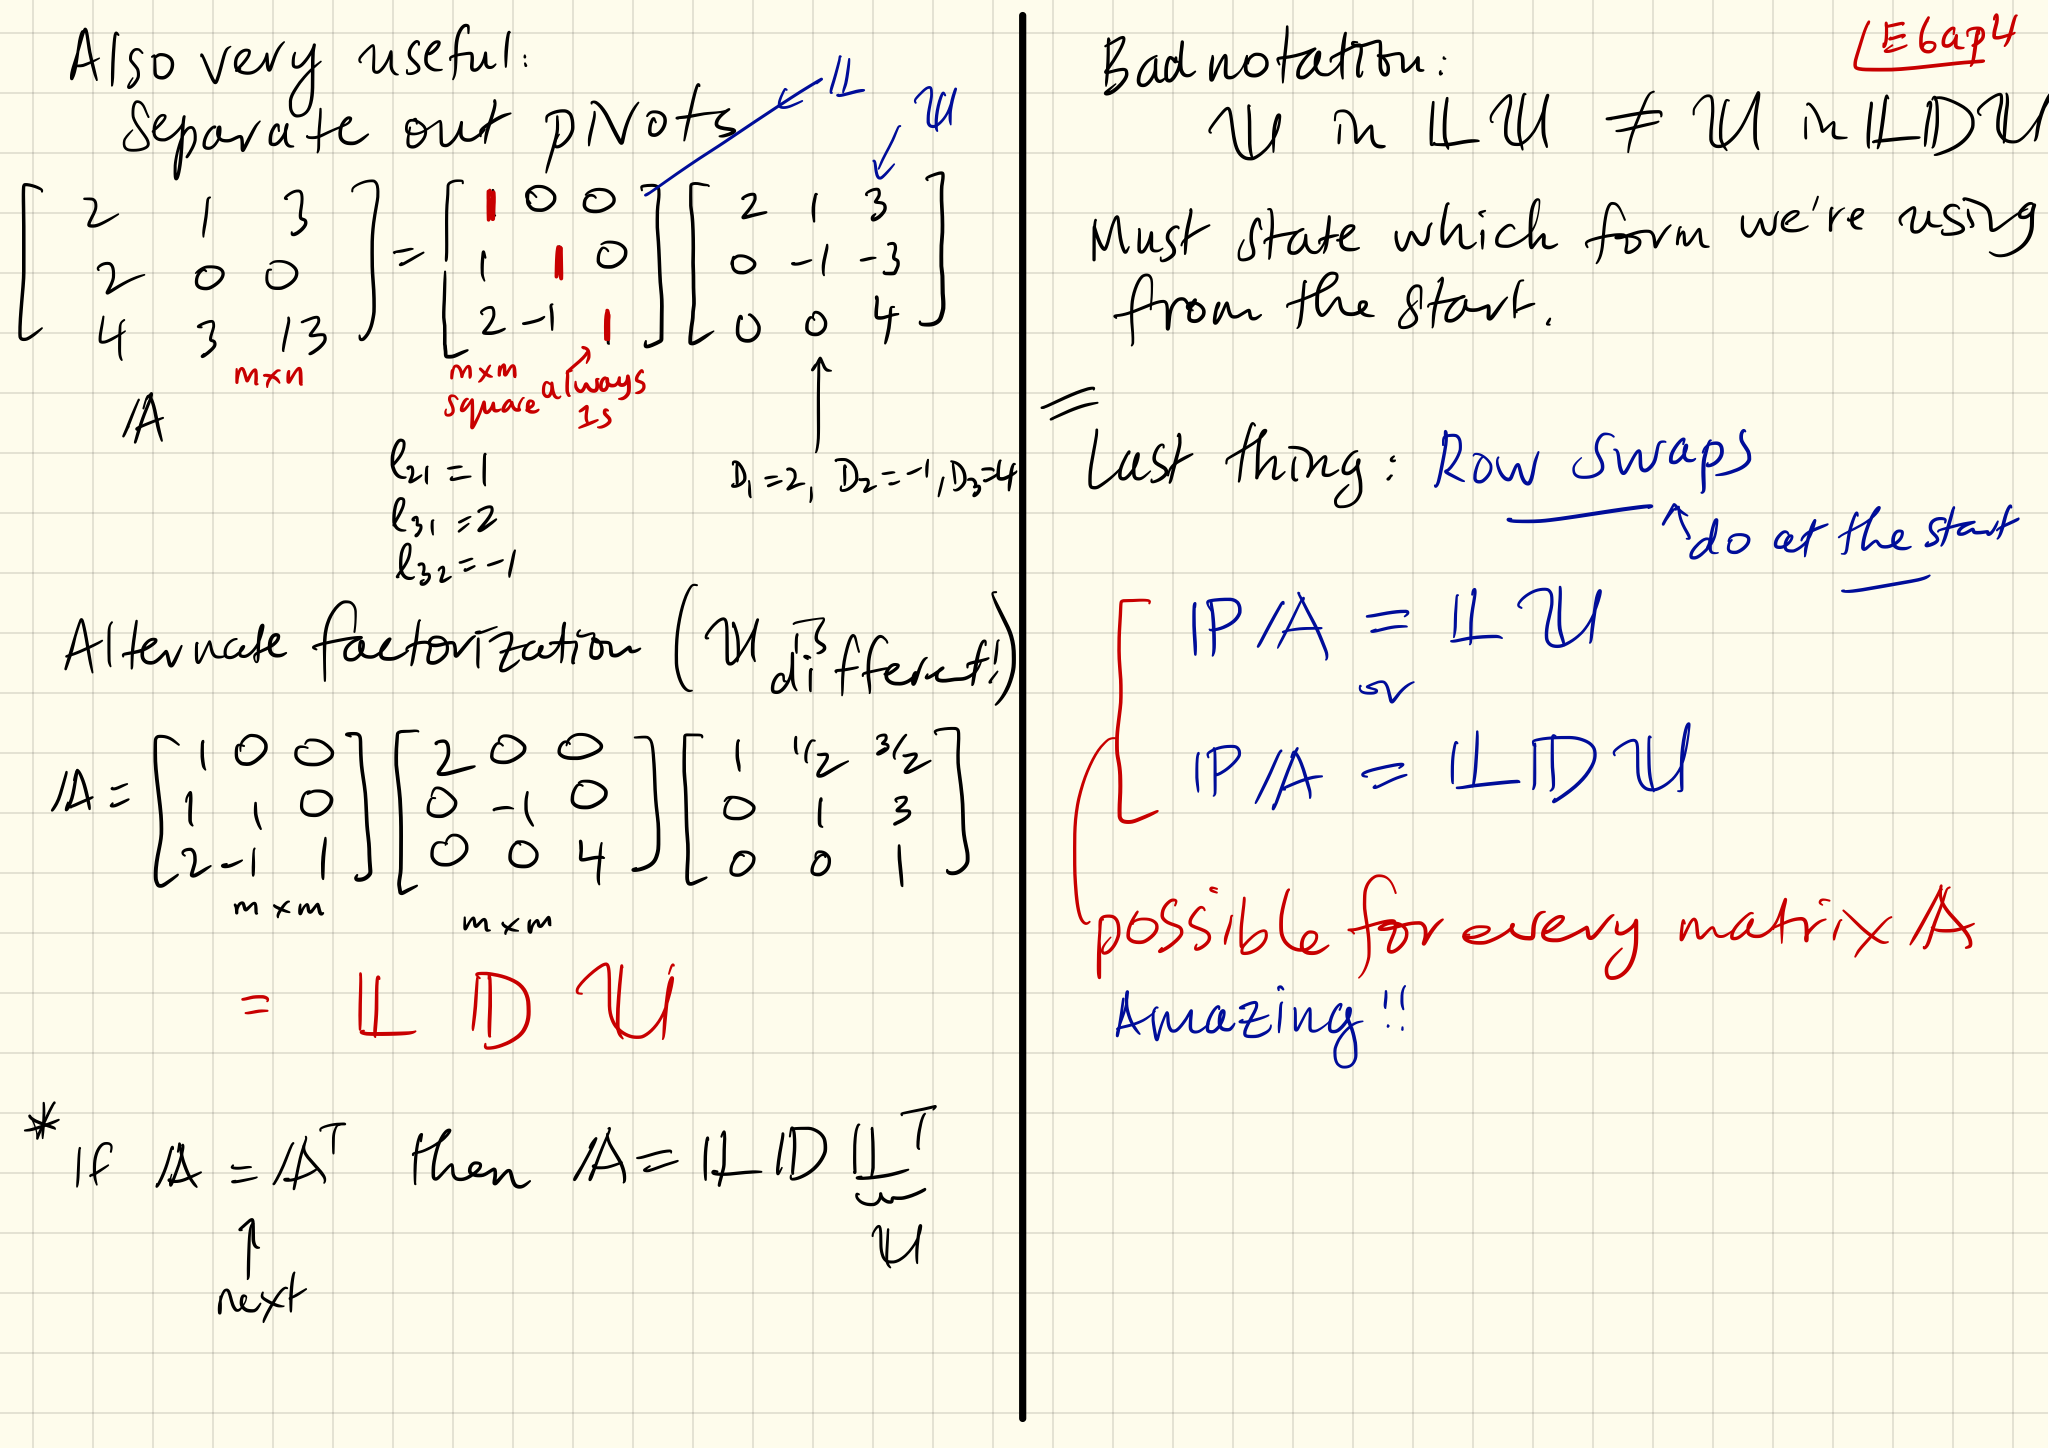 Also very useful:
Separate out pivots
𝕃
𝕌
[2 1 3; 2 0 0; 4 3 13] = [1 0 0; 1 1 0; 2 -1 1] [2 1 3; 0 -1 -3; 0 0 4]
m×n
m×m
square
always
1s
𝔸
l₂₁ = 1
l₃₁ = 2
l₃₂ = -1
D₁ = 2, D₂ = -1, D₃ = 4
Alternate factorization (𝕌 is different!)
𝔸 = [1 0 0; 1 1 0; 2 -1 1] [2 0 0; 0 -1 0; 0 0 4] [1 1/2 3/2; 0 1 3; 0 0 1]
m×m
m×m
= 𝕃 𝔻 𝕌
* If 𝔸 = 𝔸ᵀ then 𝔸 = 𝕃𝔻𝕃ᵀ
𝕌
↑
next
E6ap4
Bad notation:
𝕌 in 𝕃𝕌 ≠ 𝕌 in 𝕃𝔻𝕌
Must state which form we're using
from the start.
Last thing: Row Swaps
↑ do at the start
ℙ𝔸 = 𝕃𝕌
or
ℙ𝔸 = 𝕃𝔻𝕌
possible for every matrix 𝔸
Amazing!!